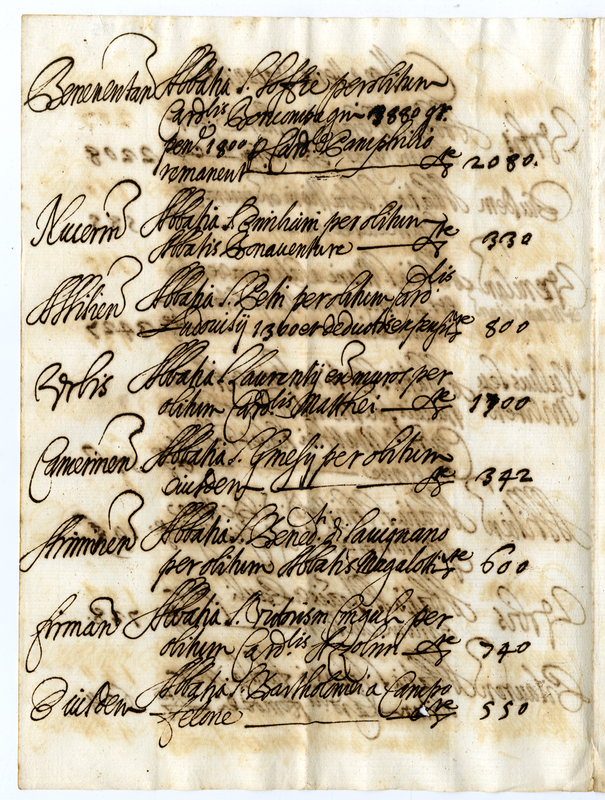 Beneventan Abbatia S. Soffie per obitum
Card.lis Boncompagni 3880 gr.
pen.e 1800 p Card. Pamphilio
remanent 2080.
Nucerin Abbatia S. per obitum
Abbatis Bonaventure 330
Abbatia S. Petri per obitum Card.lis
Ludovisij 1360 et deductis 800
Urbis Abbatia S. Laurentij ex.a muros per
obitum Card.lis Matthei 1700
Camerinen Abbatia S. per obitum
eiusdem 342
Ariminen Abbatia S. Bened.ti di Savignano
per obitum Abbatis Magalotti 600
Firman Abbatia S. per
obitum Card.lis Azzolini 740
Eiusdem Abbatia S. Bartholomei a Campo
felone 550